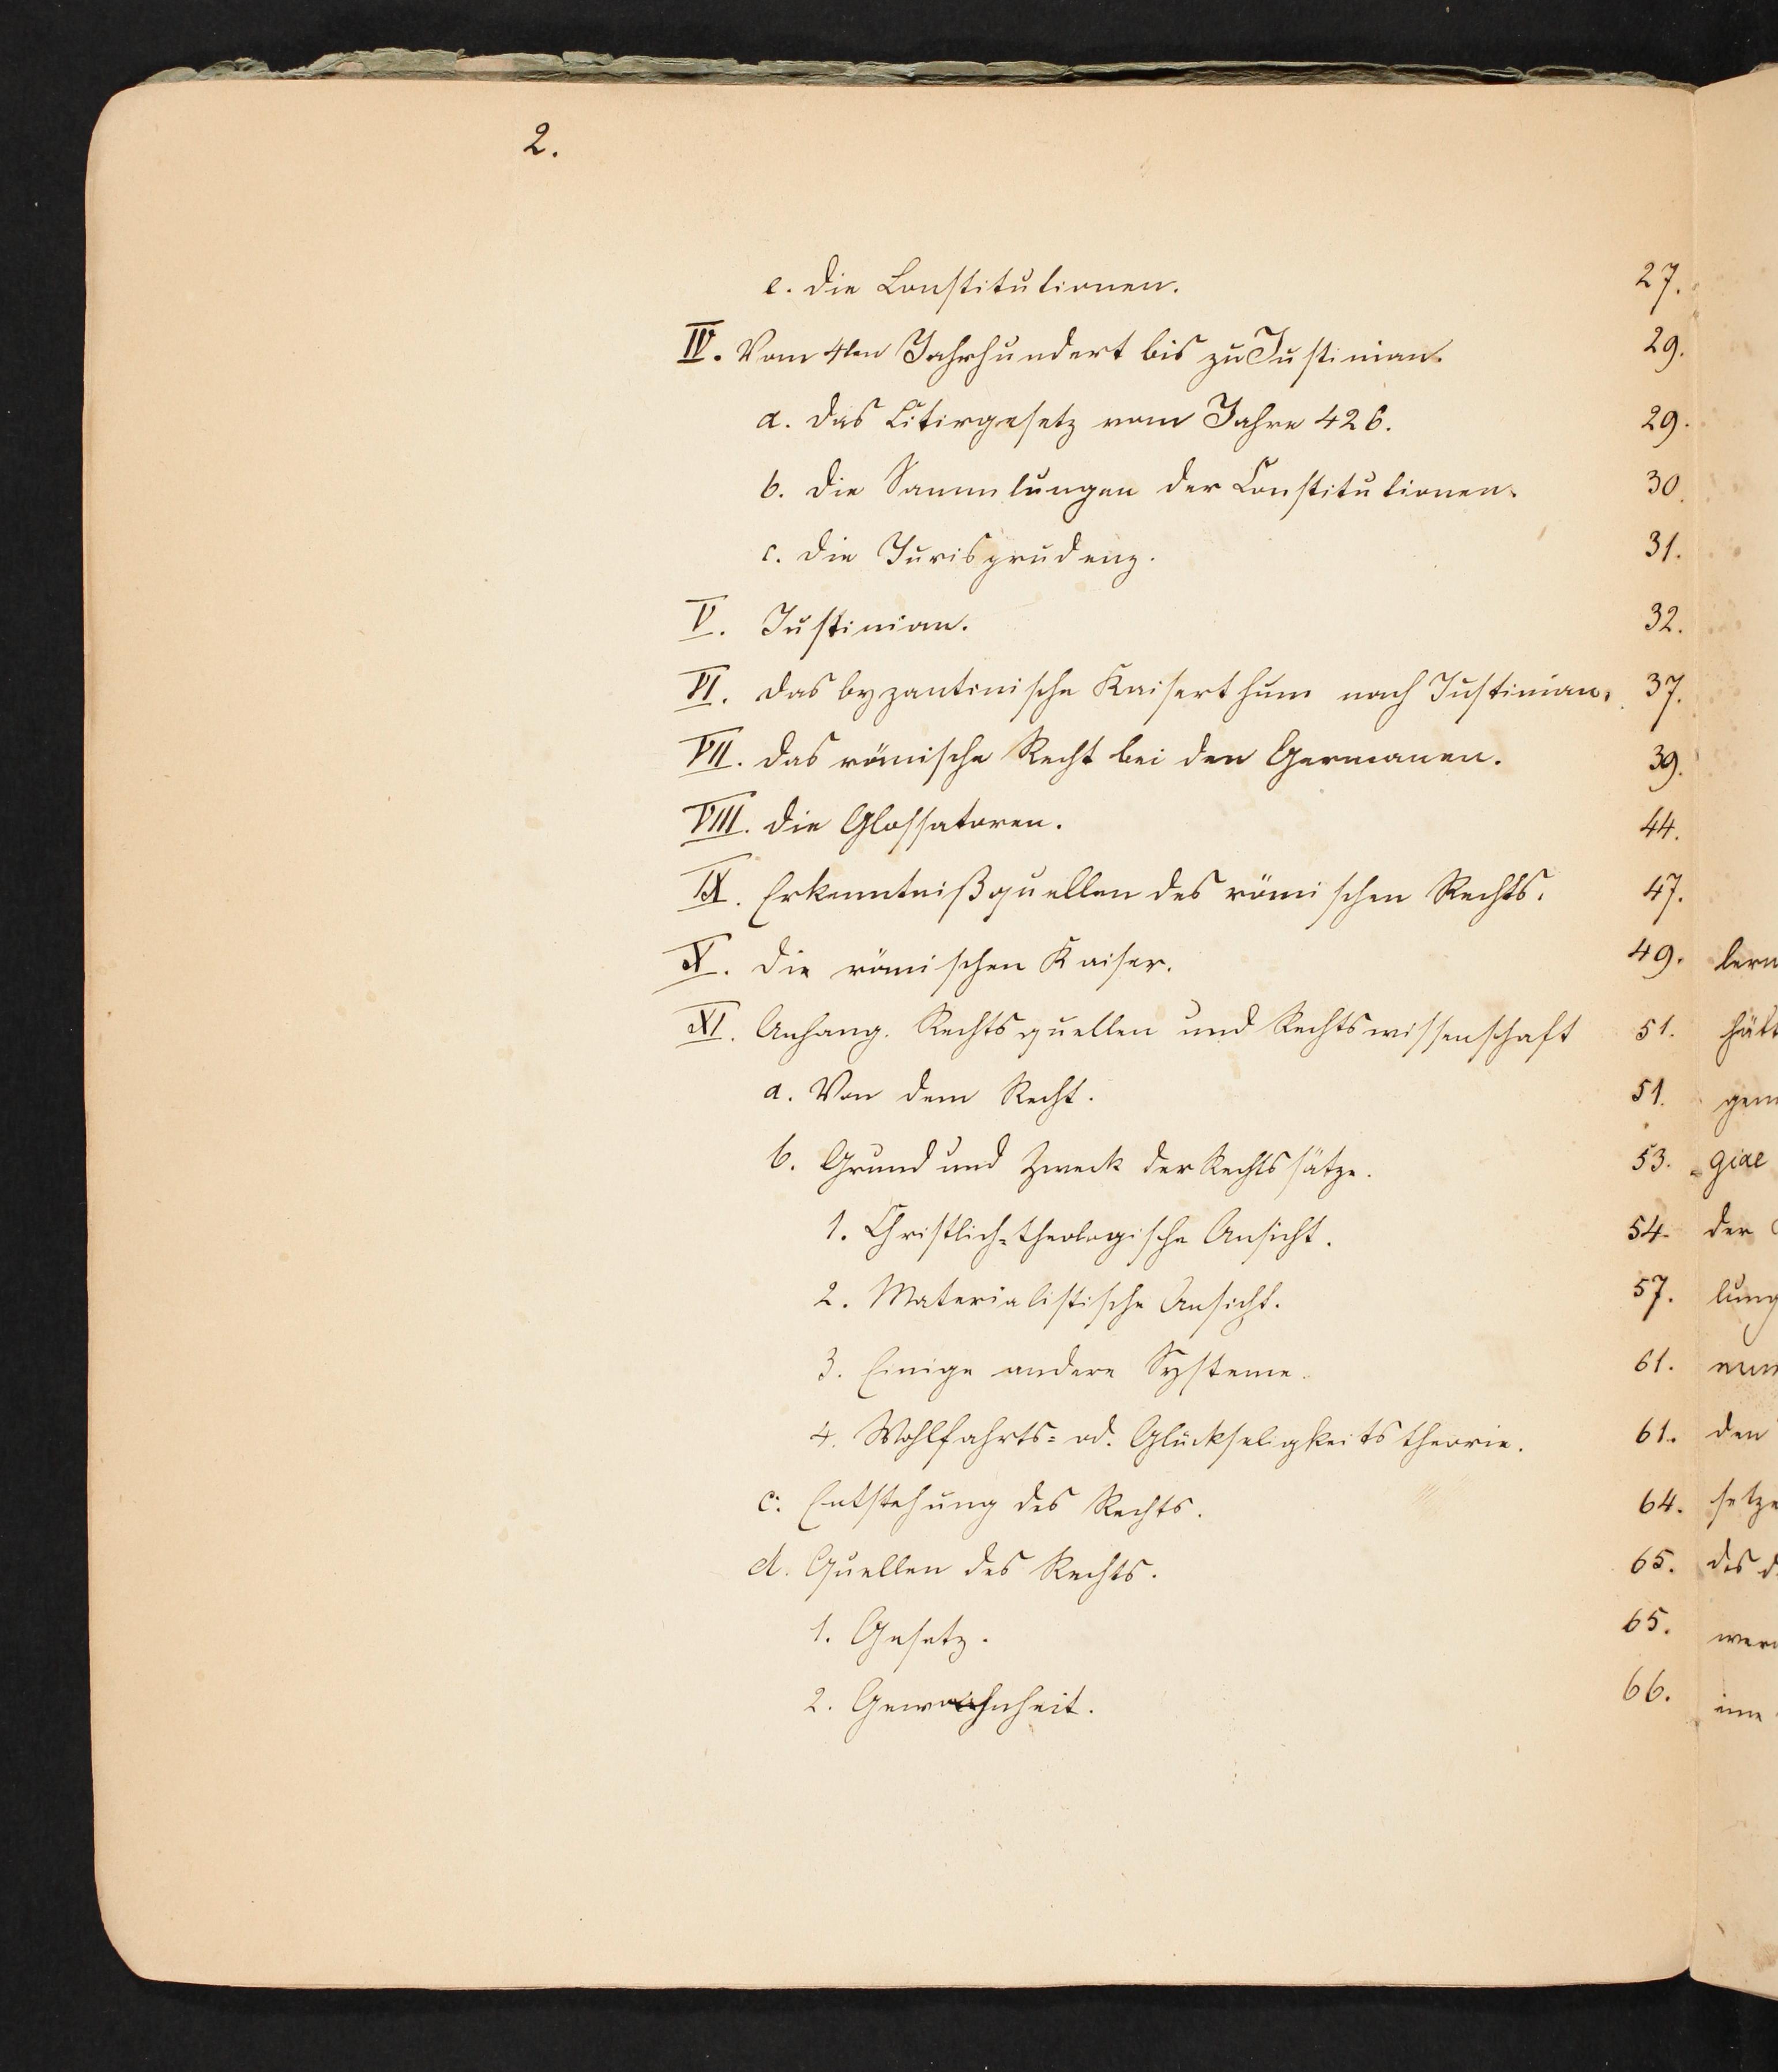 2.
e. Die Constitutionen. 27.
IV. Vom 4ten Jahrhundert bis zu Justinian. 29.
a. Das Citirgesetz vom Jahre 426. 29.
b. Die Sammlungen der Constitutionen. 30.
c. Die Jurisprudenz. 31.
V. Justinian. 32.
VI. Das byzantinische Kaiserthum nach Justinian. 37.
VII. Das römische Recht bei den Germanen. 39.
VIII. Die Glossatoren. 44.
IX. Erkenntnißquellen des römischen Rechts. 47.
X. Die römischen Kaiser. 49.
XI. Anhang. Rechtsquellen und Rechtswissenschaft 51.
a. Von dem Recht. 51.
b. Grund und Zweck der Rechtssätze. 53.
1. Christlich-theologische Ansicht. 54.
2. Materialistische Ansicht. 57.
3. Einige andere Systeme. 61.
4. Wohlfahrts- od. Glückseligkeitstheorie. 61.
c. Entstehung des Rechts. 64.
d. Quellen des Rechts. 65.
1. Gesetz. 65.
2. Gewohnheit. 66.